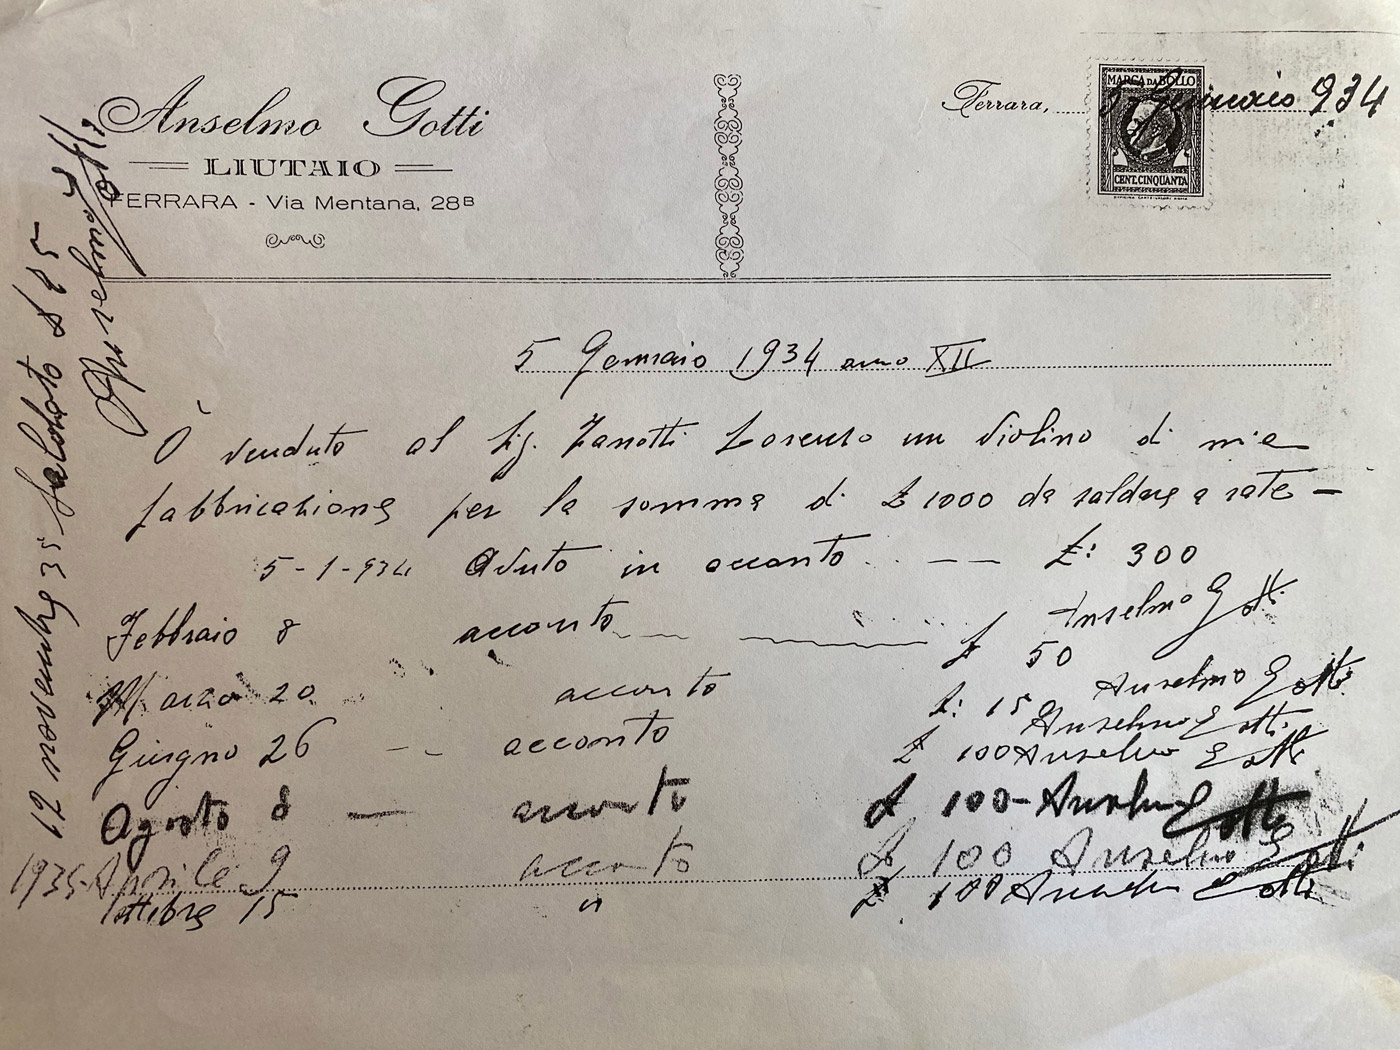 Anselmo Gotti
LIUTAIO
FERRARA - Via Mentana, 28B
Ferrara, 5 Gennaio 934
MARCA DA BOLLO
CENT. CINQUANTA
5 Gennaio 1934 anno XII
Ò venduto al Sig. Zanotti Lorenzo un violino di mia
fabbricazione per la somma di £ 1000 da saldare a rate -
5-1-934 Avuto in acconto £: 300
Anselmo Gotti
Febbraio 8 acconto £ 50
Anselmo Gotti
Marzo 20 acconto £: 150
Anselmo Gotti
Giugno 26 -- acconto £ 100 Anselmo Gotti
Agosto 8 — acconto £ 100 - Anselmo Gotti
1935 - Aprile 9 acconto £ 100 Anselmo Gotti
Ottobre 15 " £ 100 Anselmo Gotti
12 novembre 35 saldato
Anselmo Gotti